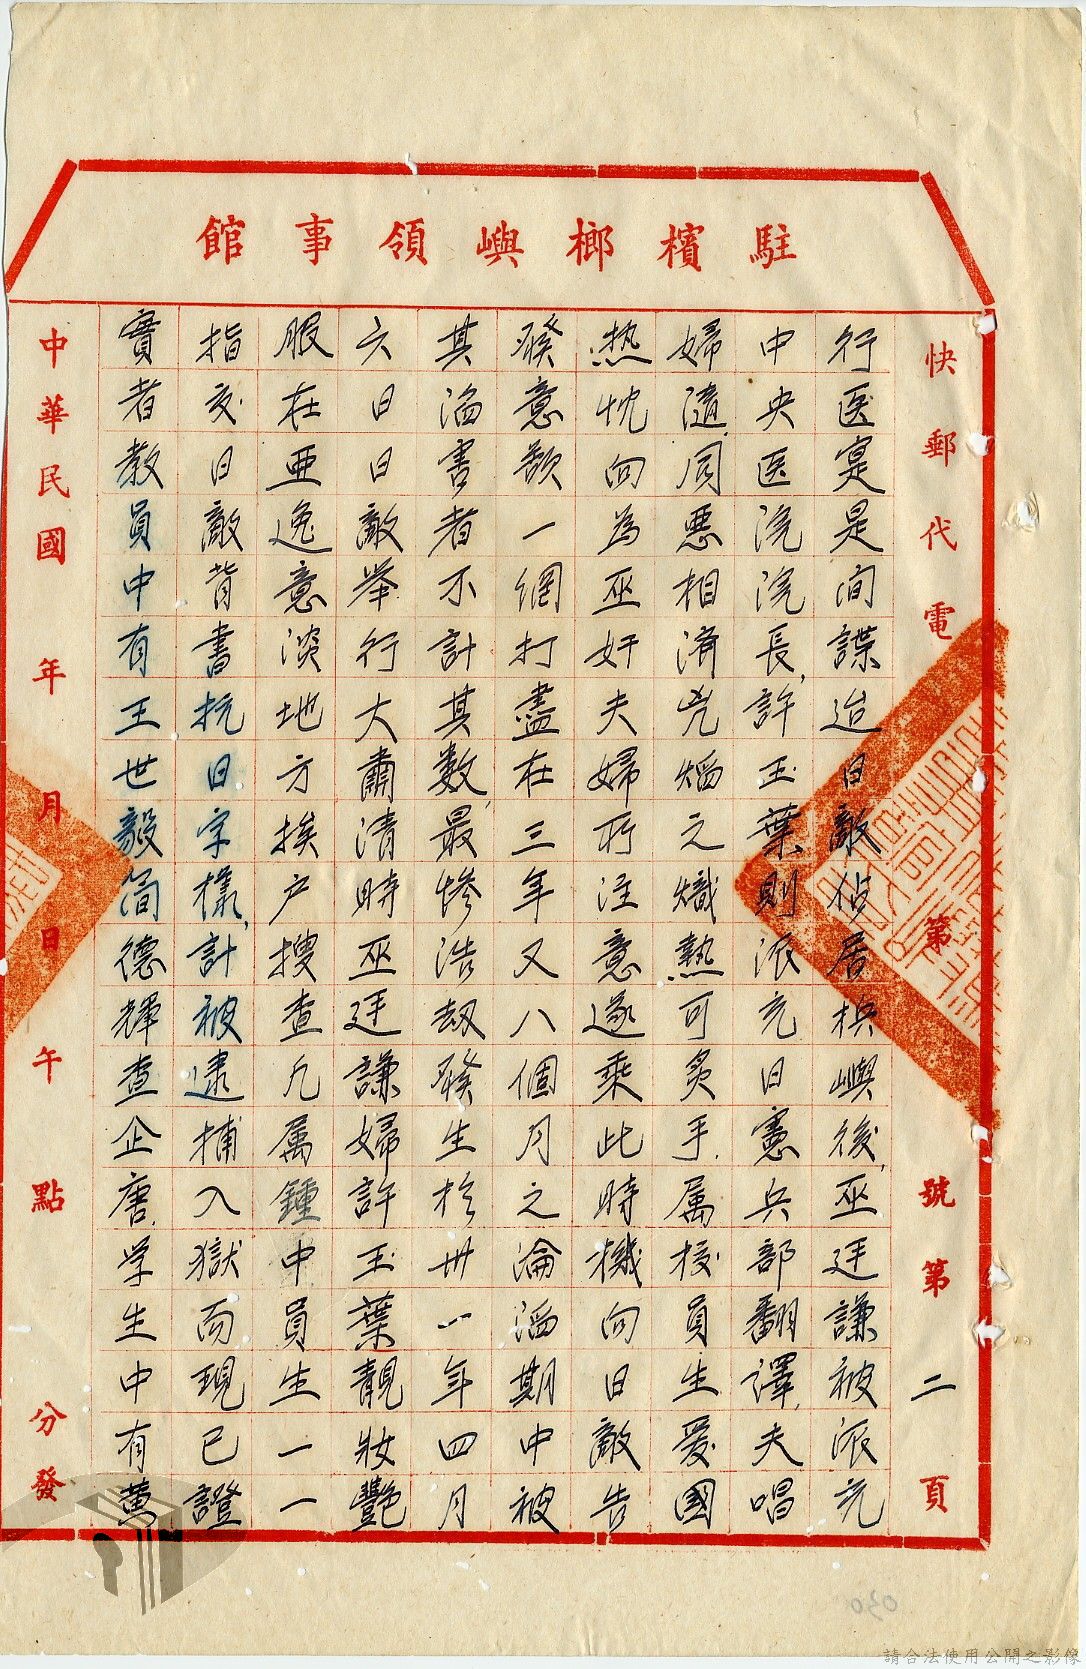 駐檳榔嶼領事館
快郵代電 第 號第二頁
行医寔是间諜迨日敵佔居檳嶼後,巫迋謙被派充
中央医院院長,許玉葉則派充日憲兵部翻譯,夫唱
婦隨,同惡相济兇焰之熾熱可炙手,属校員生爱國
热忱向為巫奸夫婦所注意遂乘此時機向日敵告
發意欲一網打盡在三年又八個月之淪滔期中被
其滔害者不計其数,最惨浩劫發生於卅一年四月
六日日敵举行大肅清時巫迋謙婦許玉葉靚妝艷
服在亜逸意淡地方挨户搜查凢属鍾中員生一一
指交日敵背書抗日字樣,計被逮捕入獄而現已證
實者教員中有王世毅简德輝查企唐,学生中有黄
中華民國 年 月 日 午 點 分發
030
請合法使用公開之影像